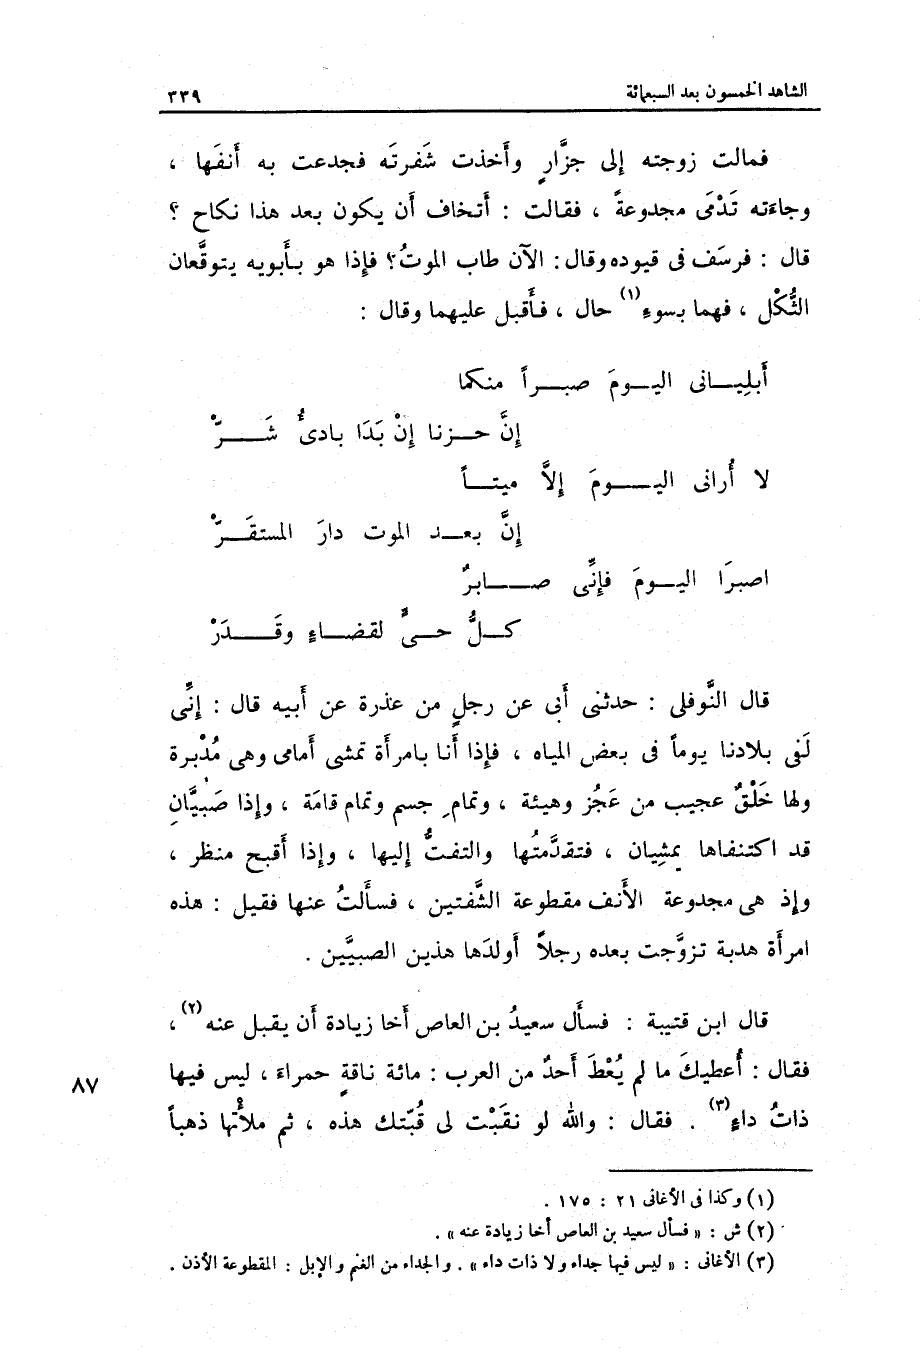 الشاهد الخمسون بعد السبعمائة ٣٣٩
فمالت زوجته إلى جزَّارٍ وأَخذت شَفرتَه فجدعت به أَنفَها ،
وجاءَته تَدْمَى مجدوعةً ، فقالت : أَتخاف أَن يكون بعد هذا نكاح ؟
قال : فرسَف فى قيوده وقال : الآن طاب الموتُ؟ فإِذا هو بأَبويه يتوقَّعان
الثُّكْل ، فهما بسوءِ(١) حال ، فأَقبل عليهما وقال :
أَبلِيانى اليومَ صبراً منكما
إِنَّ حزنا إِنْ بَدَا بادىُٔ شَرّْ
لا أُرانى اليومَ إِلاَّ ميتاً
إِنَّ بعد الموت دارَ المستقَرّْ
اصبرَا اليومَ فإِنِّى صابرٌ
كلُّ حىٍّ لقضاءٍ وقَدَرْ
قال النَّوفلى : حدثنى أَبى عن رجلٍ من عذرة عن أَبيه قال : إِنِّى
لَفى بلادنا يوماً فى بعض المياه ، فإِذا أَنا بامرأَة تمشى أَمامى وهى مُدْبرة
ولها خَلْقٌ عجيب من عَجُز وهيئة ، وتمامِ جسم وتمام قامَة ، وإِذا صَبيَّانِ
قد اكتنفاها يمشِيان ، فتقدَّمتُها والتفتُّ إِليها ، وإِذا أَقبح منظر ،
وإِذ هى مجدوعة الأَنف مقطوعة الشَّفتين ، فسأَلتُ عنها فقيل : هذه
امرأَة هدبة تزوَّجت بعده رجلاً أَولدَها هذين الصبيَّين .
قال ابن قتيبة : فسأَل سعيدُ بن العاص أَخا زيادة أَن يقبل عنه(٢) ،
فقال : أُعطيكَ ما لم يُعْطَ أَحدٌ من العرب : مائة ناقةٍ حمراءَ ، ليس فيها
٨٧
ذاتُ داءٍ(٣) . فقال : والله لو نقَبْت لى قُبّتك هذه ، ثم ملأْتها ذهباً
(١) وكذا فى الأغانى ٢١ : ١٧٥ .
(٢) ش : « فسأل سعيد بن العاص أخا زيادة عنه » .
(٣) الأغانى : « ليس فيها جداء ولا ذات داء » . والجداء من الغنم والإبل : المقطوعة الأذن .